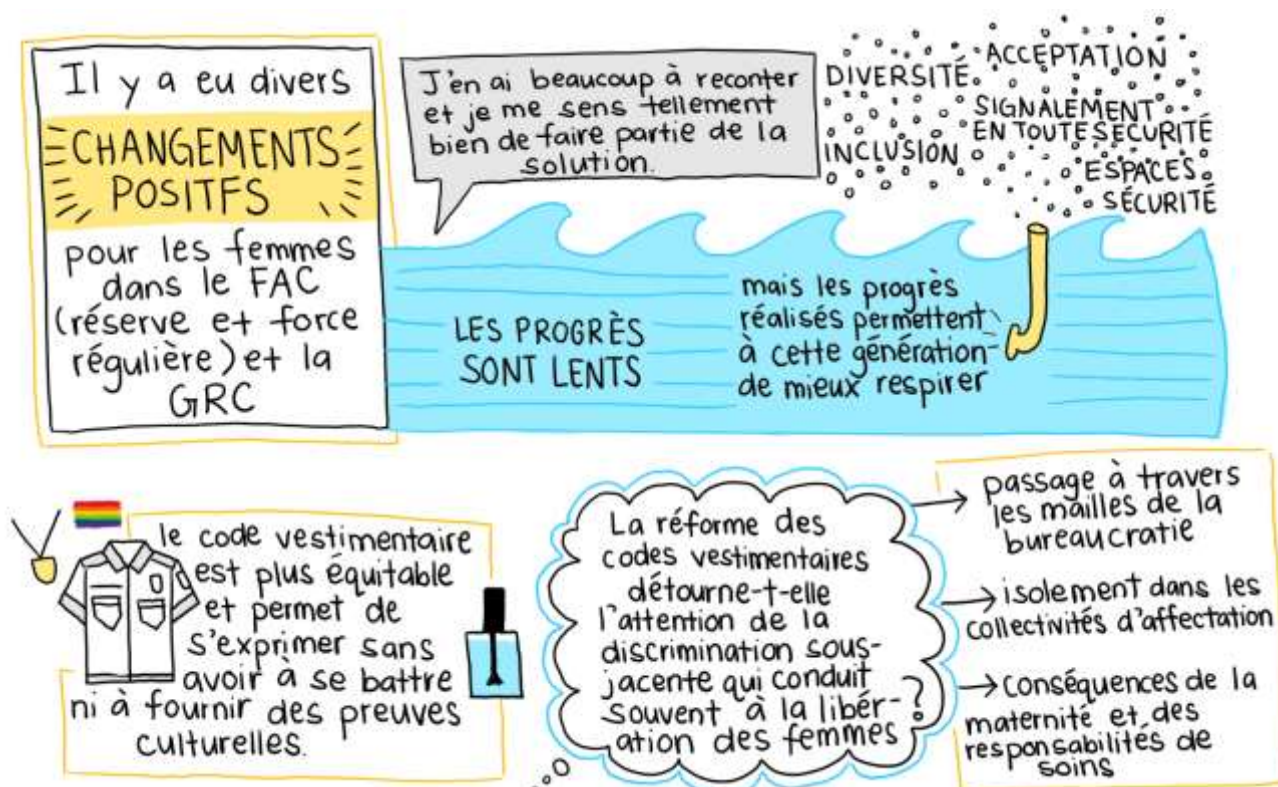 Il y a eu divers
CHANGEMENTS
POSITFS
pour les femmes
dans le FAC
(réserve et force
régulière) et la
GRC
J'en ai beaucoup à reconter
et je me sens tellement
bien de faire partie de la
solution.
DIVERSITÉ
ACCEPTATION
SIGNALEMENT
EN TOUTE SÉCURITÉ
INCLUSION
ESPACES
SÉCURITÉ
LES PROGRÈS
SONT LENTS
mais les progrès
réalisés permettent
à cette génération
de mieux respirer
le code vestimentaire
est plus équitable
et permet de
s'exprimer sans
avoir à se battre
ni à fournir des preuves
culturelles.
La réforme des
codes vestimentaires
détourne-t-elle
l'attention de la
discrimination sous-
jacente qui conduit
souvent à la libér-
ation des femmes ?
→ passage à travers
les mailles de la
bureaucratie
→ isolement dans les
collectivités d'affectation
→ conséquences de la
maternité et des
responsabilités de
soins